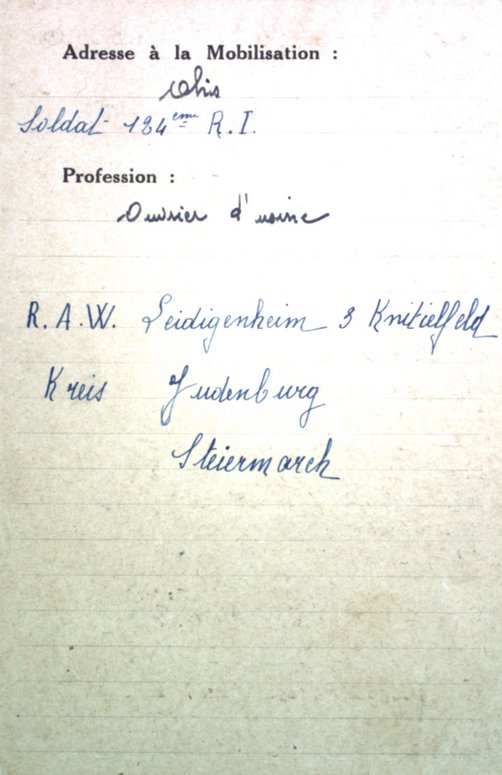 Adresse à la Mobilisation :
Ohis
Soldat 184ème R.I.
Profession :
Ouvrier d'usine
R.A.W. Leidigenheim 3 Knitielfeld
Kreis Judenburg
Steiermarch